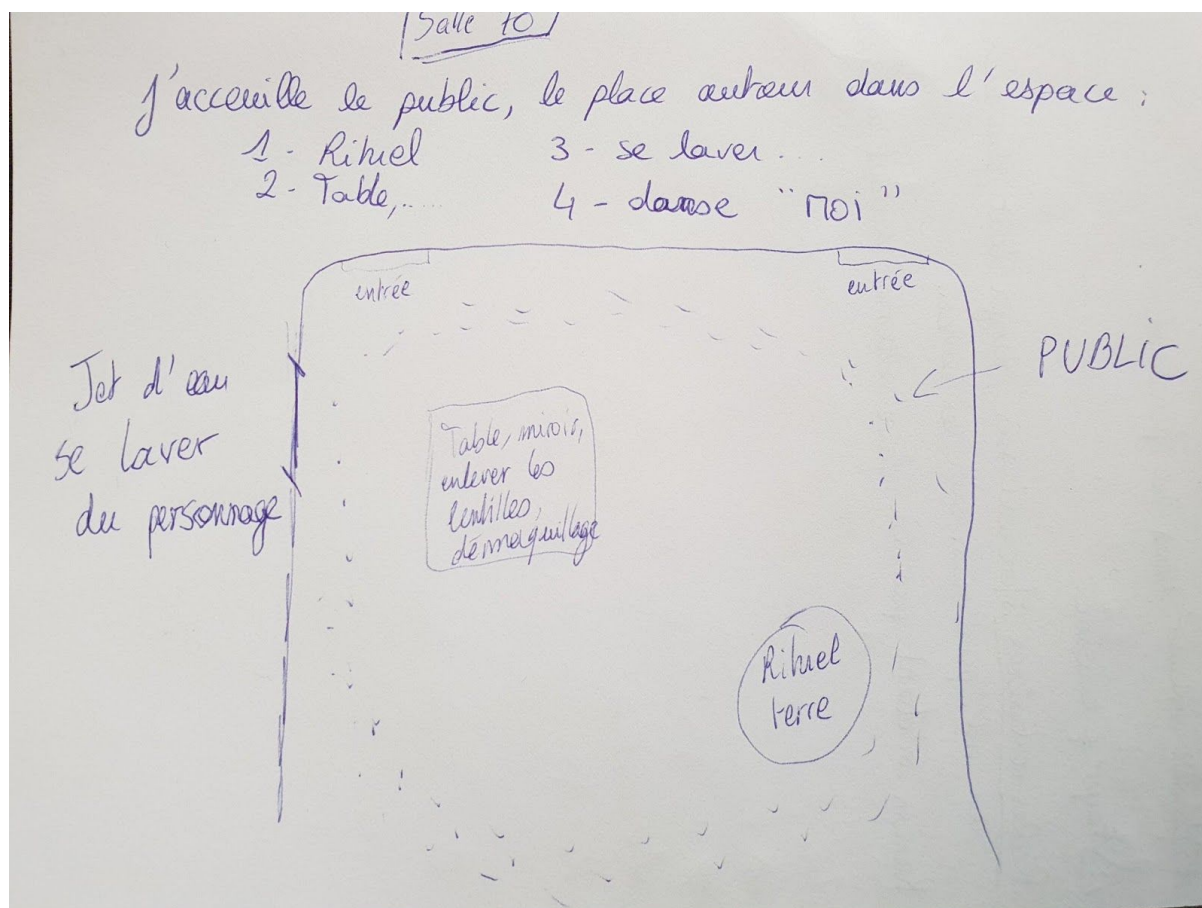 Salle 10
J'acceuille le public, le place autour dans l'espace :
1 - Rituel
2 - Table,.....
3 - se laver...
4 - danse "MOI"
entrée
entrée
PUBLIC
Jet d'eau
se laver
du personnage
Table, miroir,
enlever les
lentilles,
démaquillage
Rituel
terre